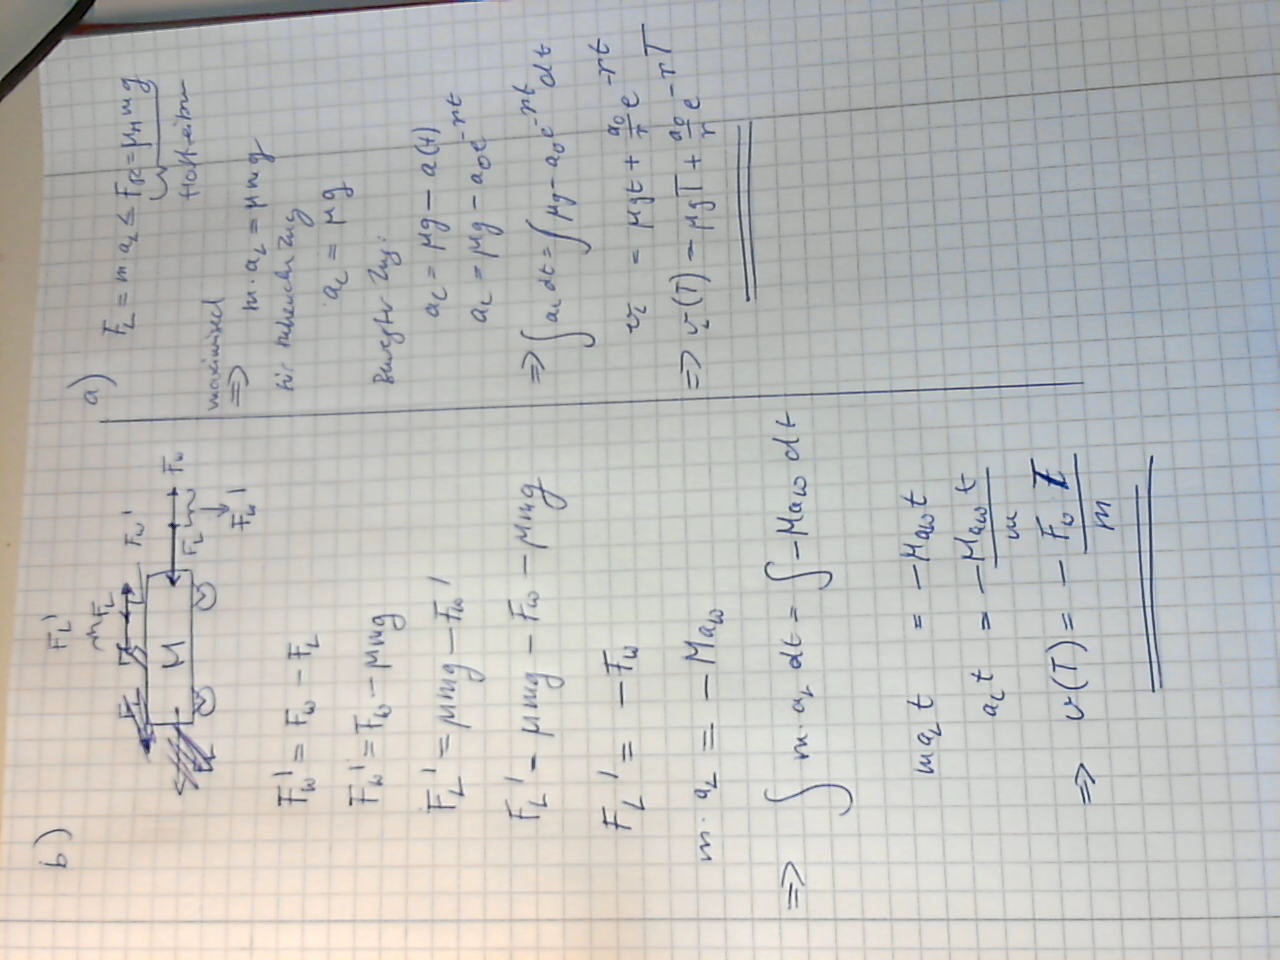 a)
F_L = m a_L ≤ F_R = μ_H m g
Haftreibung
maximiert
⇒ m · a_L = μ m g
für ruhenden Zug
a_L = μ g
Bewegter Zug:
a_L = μg − a(t)
a_L = μg − a_0 e^{-rt}
⇒ ∫ a_L dt = ∫ μg − a_0 e^{-rt} dt
v_L = μgt + a_0/r e^{-rt}
⇒ v_L(T) = μgT + a_0/r e^{-rT}
b)
F_L' F_L F_w'
M F_L F_w
F_w'
F_w' = F_w − F_L
F_w' = F_w − μmg
F_L' = μmg − F_w'
F_L' = μmg − F_w − μmg
F_L' = − F_w
m · a_L = − M a_w
⇒ ∫ m · a_L dt = ∫ − M a_w dt
m a_L t = − M a_w t
a_L t = − M a_w t / m
⇒ v(T) = − F_w T / m